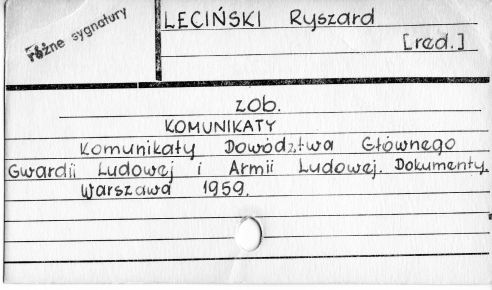 różne sygnatury
LECIŃSKI Ryszard
[red.]
zob.
KOMUNIKATY
Komunikaty Dowództwa Głównego
Gwardii Ludowej i Armii Ludowej. Dokumenty.
Warszawa 1959.